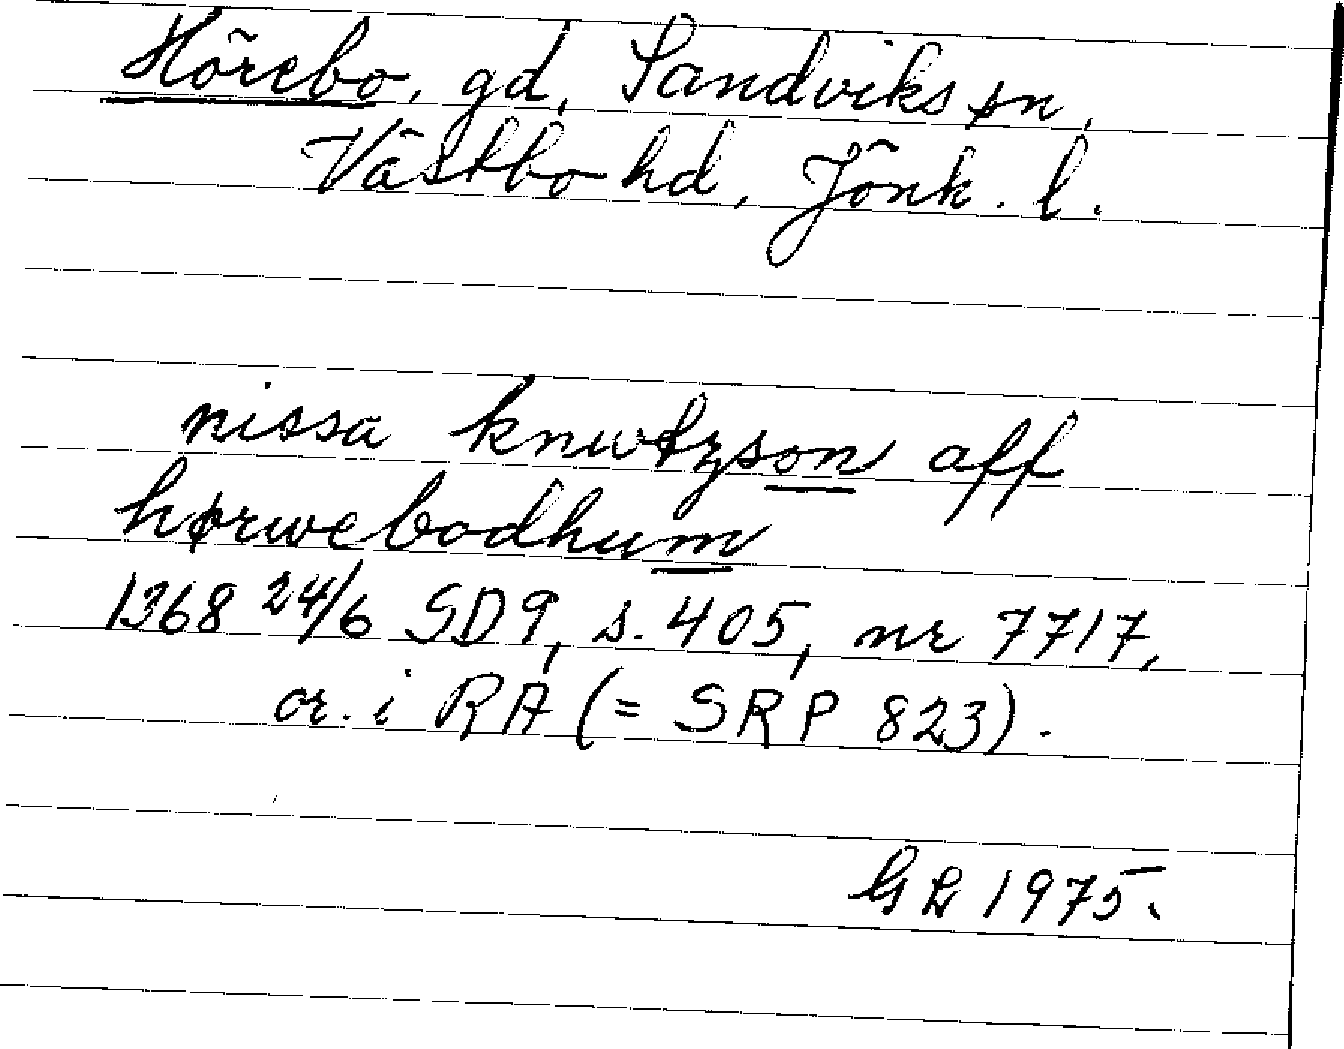 Hörebo, gd, Sandviks sn,
Västbo hd, Jönk. l.
nissa knwtzson aff
hørwebodhum
1368 24/6 SD9, s. 405, nr 7717,
or. i RA (= SRP 823).
1975.